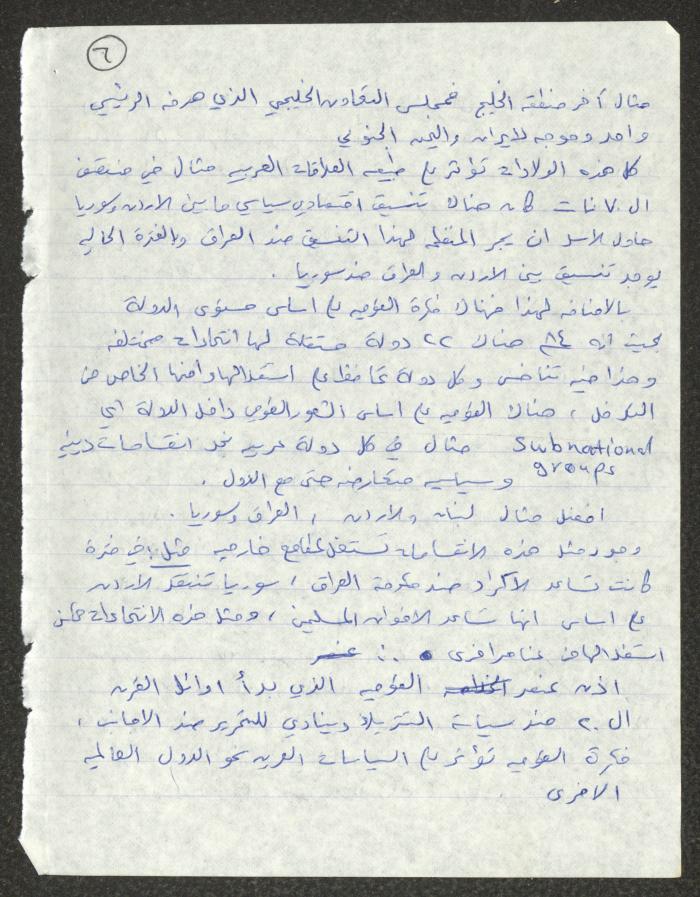 ٦
مثال آخر منطقه الخليج فمجلس التعاون الخليجي الذي هدفه الرئيسي
واحد وموجه لايران واليمن الجنوبي
كل هذه الولاءات تؤثر على طبيعه العلاقات العربيه مثال في منتصف
ال ٧٠ نات كان هناك تنسيق اقتصادي سياسي ما بين الاردن وسوريا
حاول الاسد ان يجر المنطقه لهذا التنسيق ضد العراق وبالفترة الحاليه
يوجد تنسيق بين الاردن والعراق ضد سوريا .
بالاضافه لهذا فهناك فكرة القوميه على اساس مستوى الدولة
بحيث انه هناك ٢٢ دولة مستقلة لها اتجاهات مختلفه
وهذا فيه تناقض وكل دولة تحافظ على استقلالها وأمنها الخاص من
التدخل ، هناك القوميه على اساس الشعور القومي داخل الدولة اي
Subnational groups مثال في كل دولة عربيه نجد انقسامات دينيه
وسياسيه متعارضه حتى مع الدول .
افضل مثال لبنان والاردن ، العراق وسوريا .
وجود مثل هذه الانقسامات تستغل لمطامع خارجيه مثل : في فترة
كانت تساعد الاكراد ضد حكومة العراق ، سوريا تنتقد الاردن
على اساس انها تساعد الاخوان المسلمين ، ومثل هذه الاتجاهات ممكن
استغلالها من عناصر اخرى
اذن عنصر القوميه الذي بدأ اوائل القرن
ال ٢٠ ضد سياسة التتريك وينادي للتحرير ضد الاجانب ،
فكرة القوميه تؤثر على السياسات العربيه نحو الدول العالميه
الاخرى